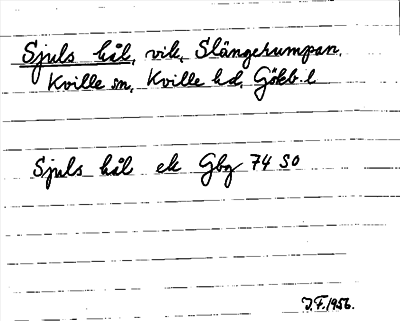 Sjuls hål, vik, Slängerumpan,
Kville sn, Kville hd, Gökb. l
Sjuls hål ek Gbg 74 SO
J.F. 1956.